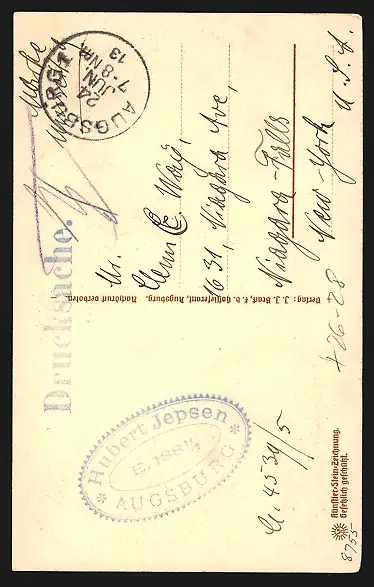 Drucksache.
AUGSBURG 1
24
JUN.
7-8 Nm
13
Mr.
Clem C. Way,
1631, Niagara Ave,
Niagara-Falls
New-York
U. S. A.
Verlag: J. J. Brack, k. b. Hoflieferant, Augsburg. Nachdruck verboten
Hubert Jepsen
E. 188½
* AUGSBURG *
4539/5
+26-28
Künstler-Stein-Zeichnung.
Gesetzlich geschützt.
8755